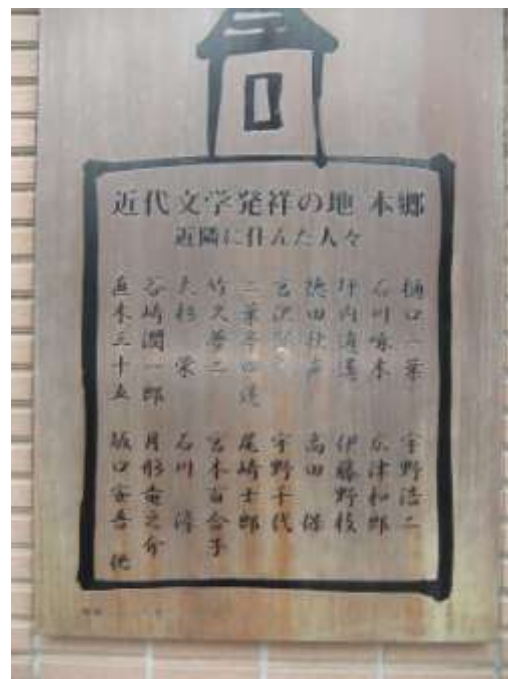 近代文学発祥の地 本郷
近隣に住んだ人々
樋口一葉
石川啄木
坪内逍遥
徳田秋声
宮沢賢治
二葉亭四迷
竹久夢二
大杉 栄
谷崎潤一郎
直木三十五
宇野浩二
広津和郎
伊藤野枝
高田 保
宇野千代
尾崎士郎
宮本百合子
石川 淳
月形竜之介
坂口安吾 他